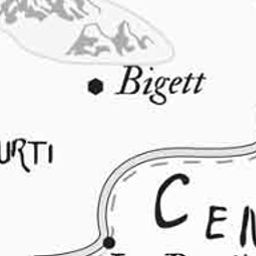 Bigett
URTI
CEN